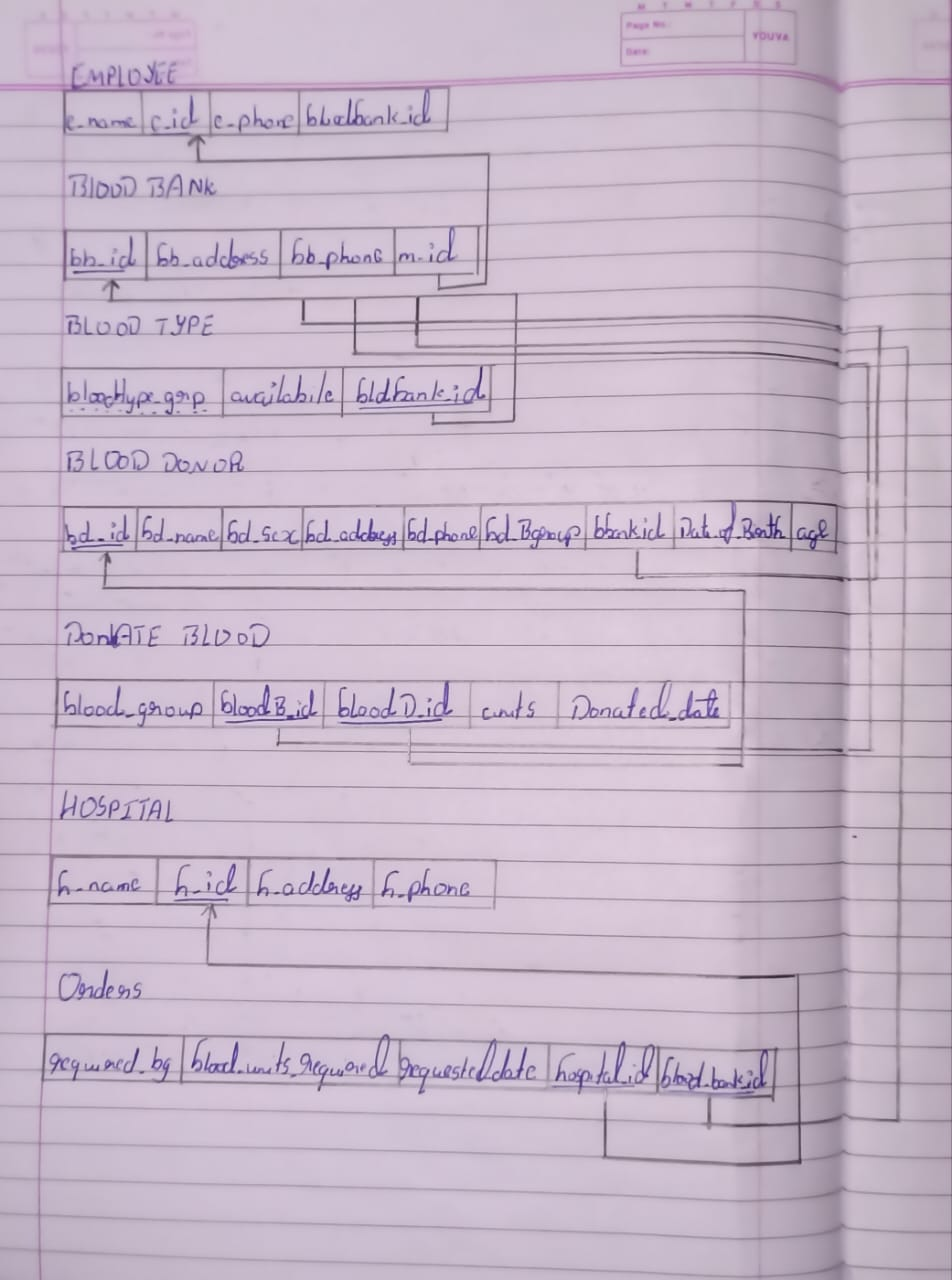 M T W T F S S
Page No.:
YOUVA
Date:
EMPLOYEE
e_name e_id e_phone bloodbank_id
BLOOD BANK
bb_id bb_address bb_phone m_id
BLOOD TYPE
bloodtype_grp availabile bldbank_id
BLOOD DONOR
bd_id bd_name bd_sex bd_address bd_phone bd_Bgroup bbankid Date_of_Birth age
DONATE BLOOD
blood_group bloodB_id bloodD_id units Donated_date
HOSPITAL
h_name h_id h_address h_phone
Orders
required_bg blood_units_required requested_date hospital_id blood_bankid